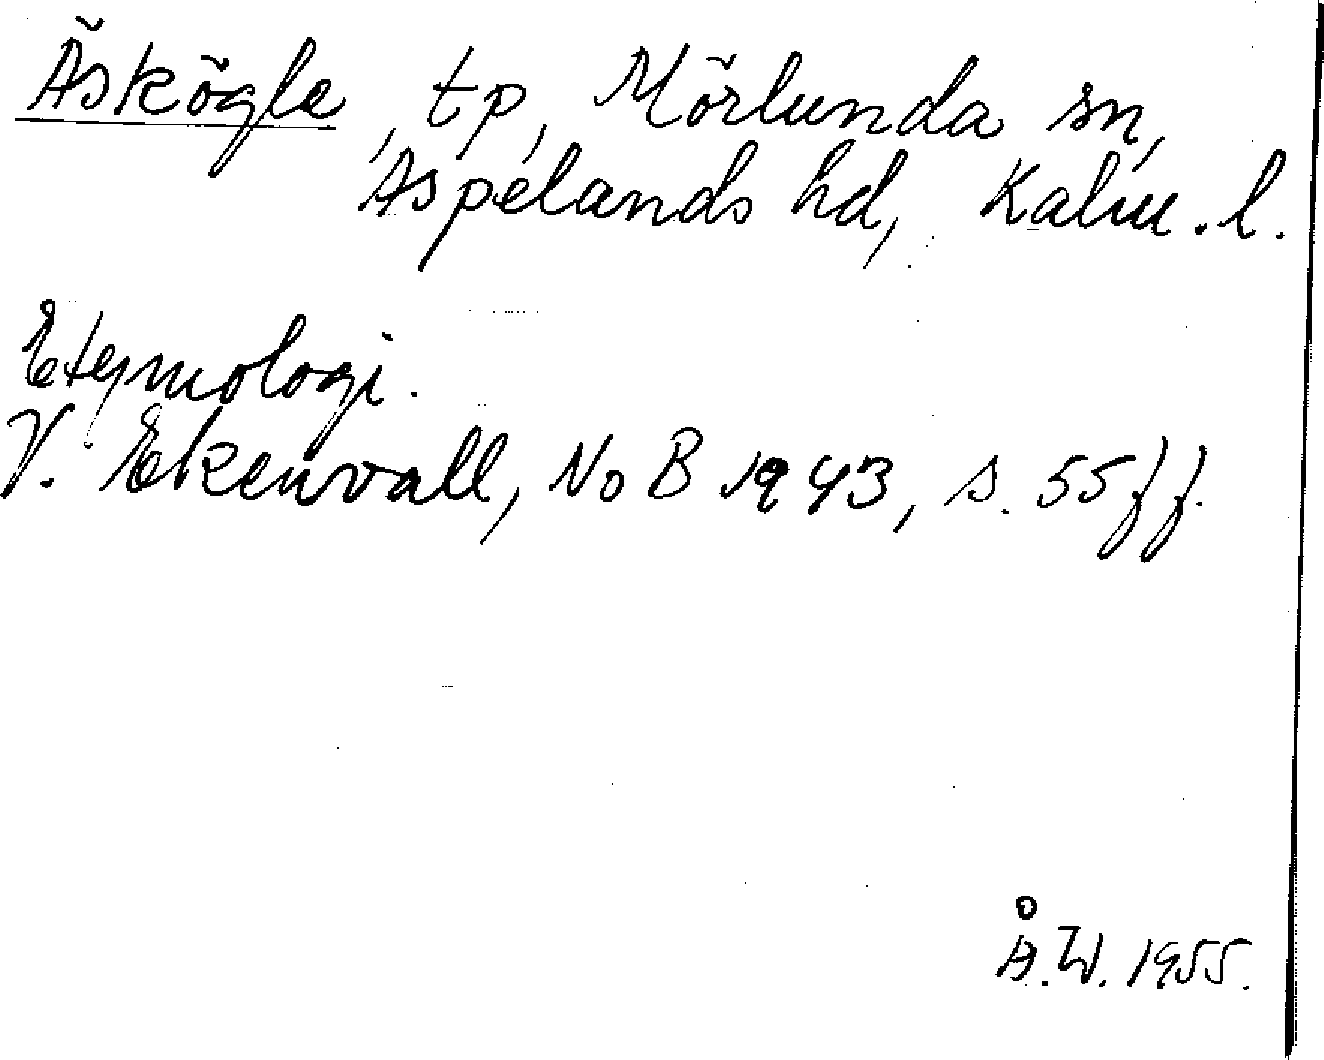 Äskögle, tp, Mörlunda sn,
Aspelands hd, Kalm. l.
Etymologi.
V. Ekenvall, NoB 1943, s. 55 ff.
Å.W. 1955.